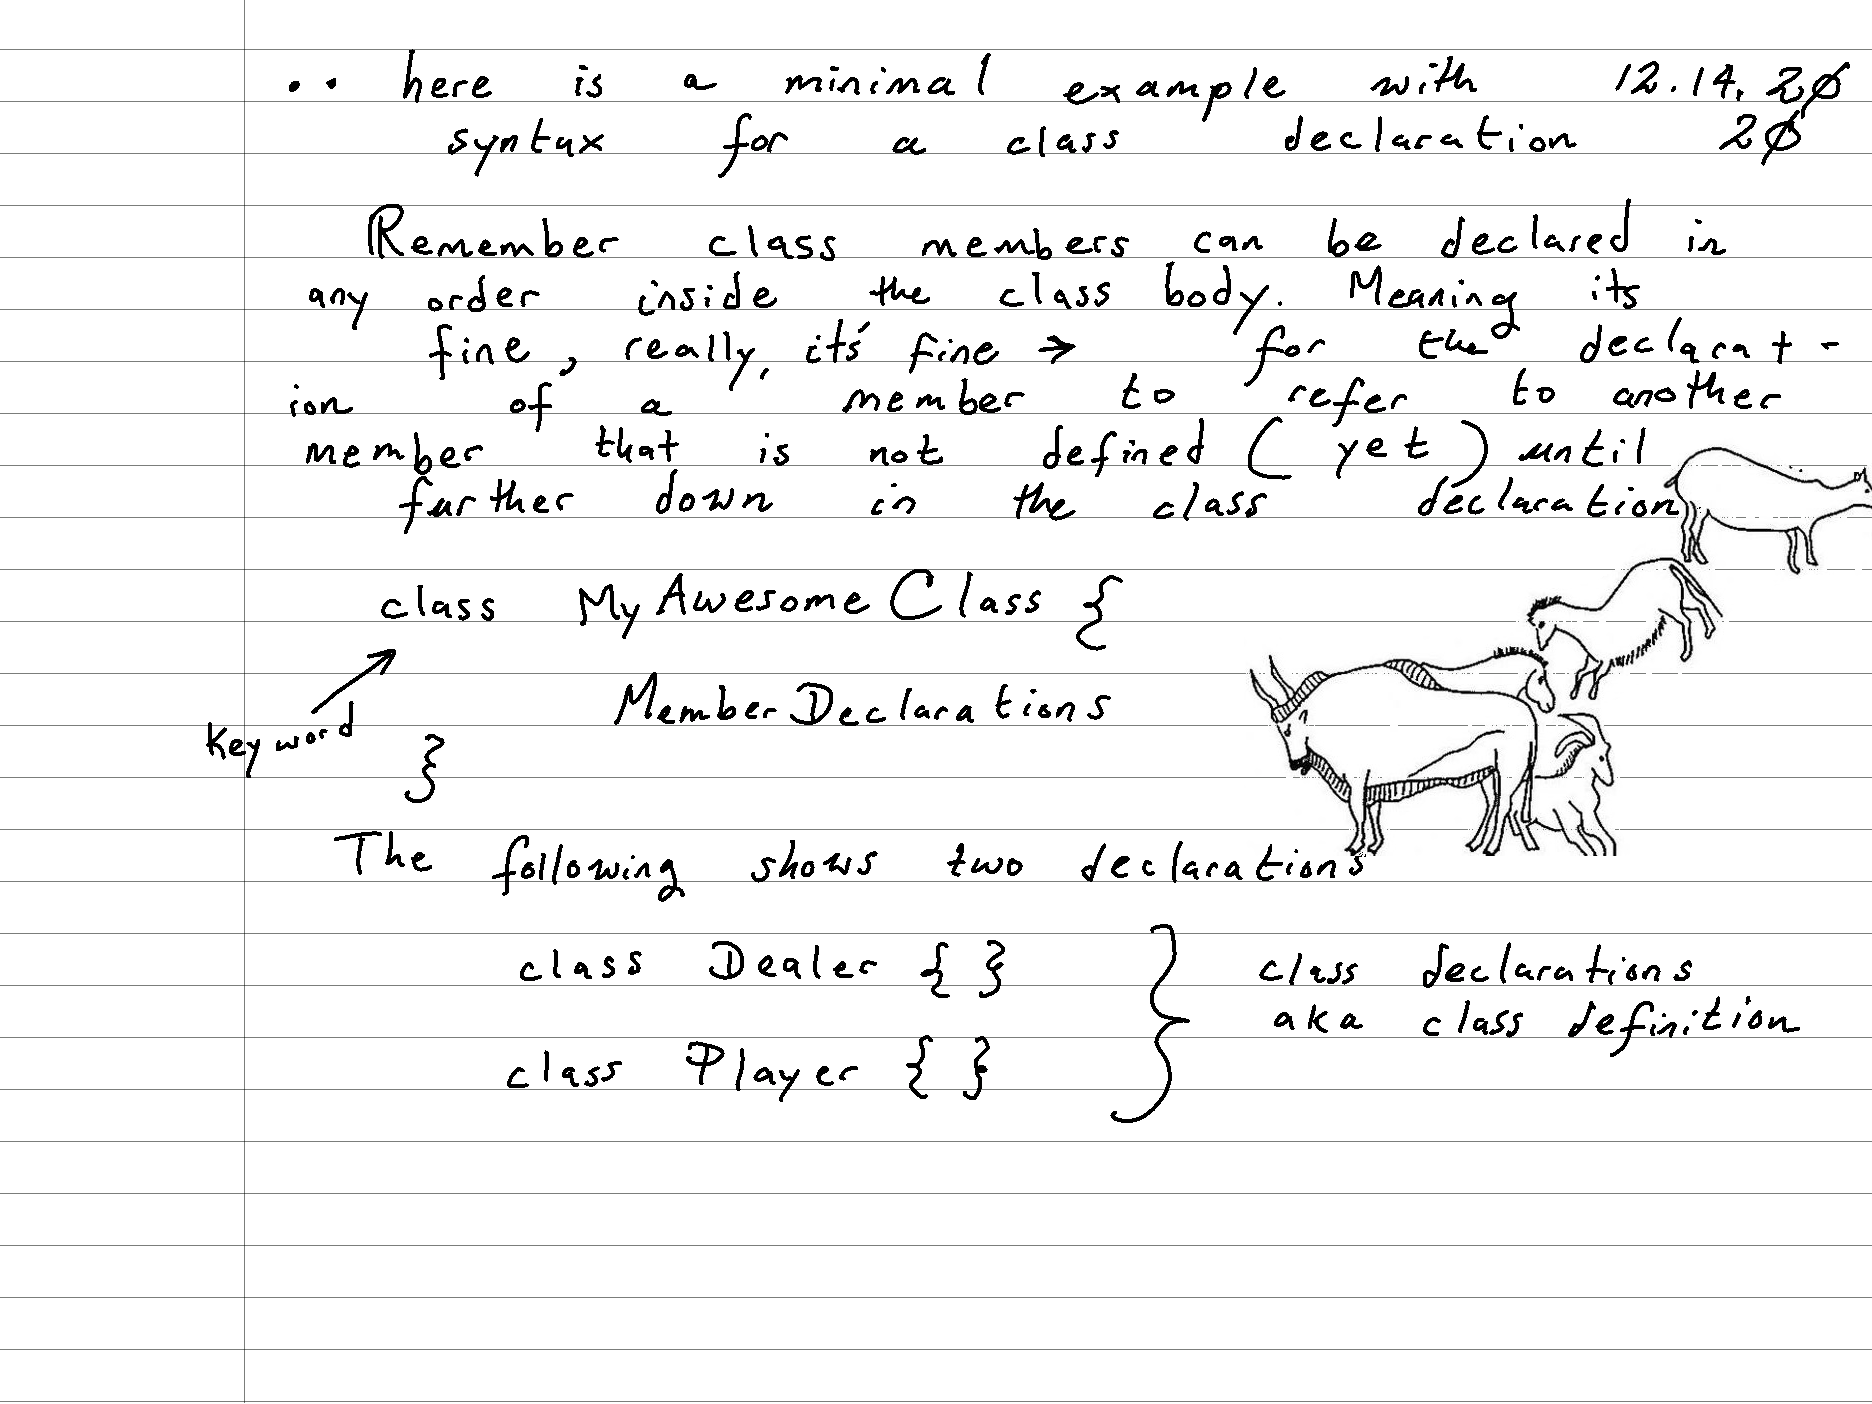 .. here is a minimal example with 12.14.20
syntax for a class declaration 20
Remember class members can be declared in
any order inside the class body. Meaning its
fine, really, it's fine → for the declarat-
ion of a member to refer to another
member that is not defined (yet) until
further down in the class declaration
class MyAwesomeClass {
MemberDeclarations
keyword
}
The following shows two declarations
class Dealer { }
class declarations
aka class definition
class Player { }